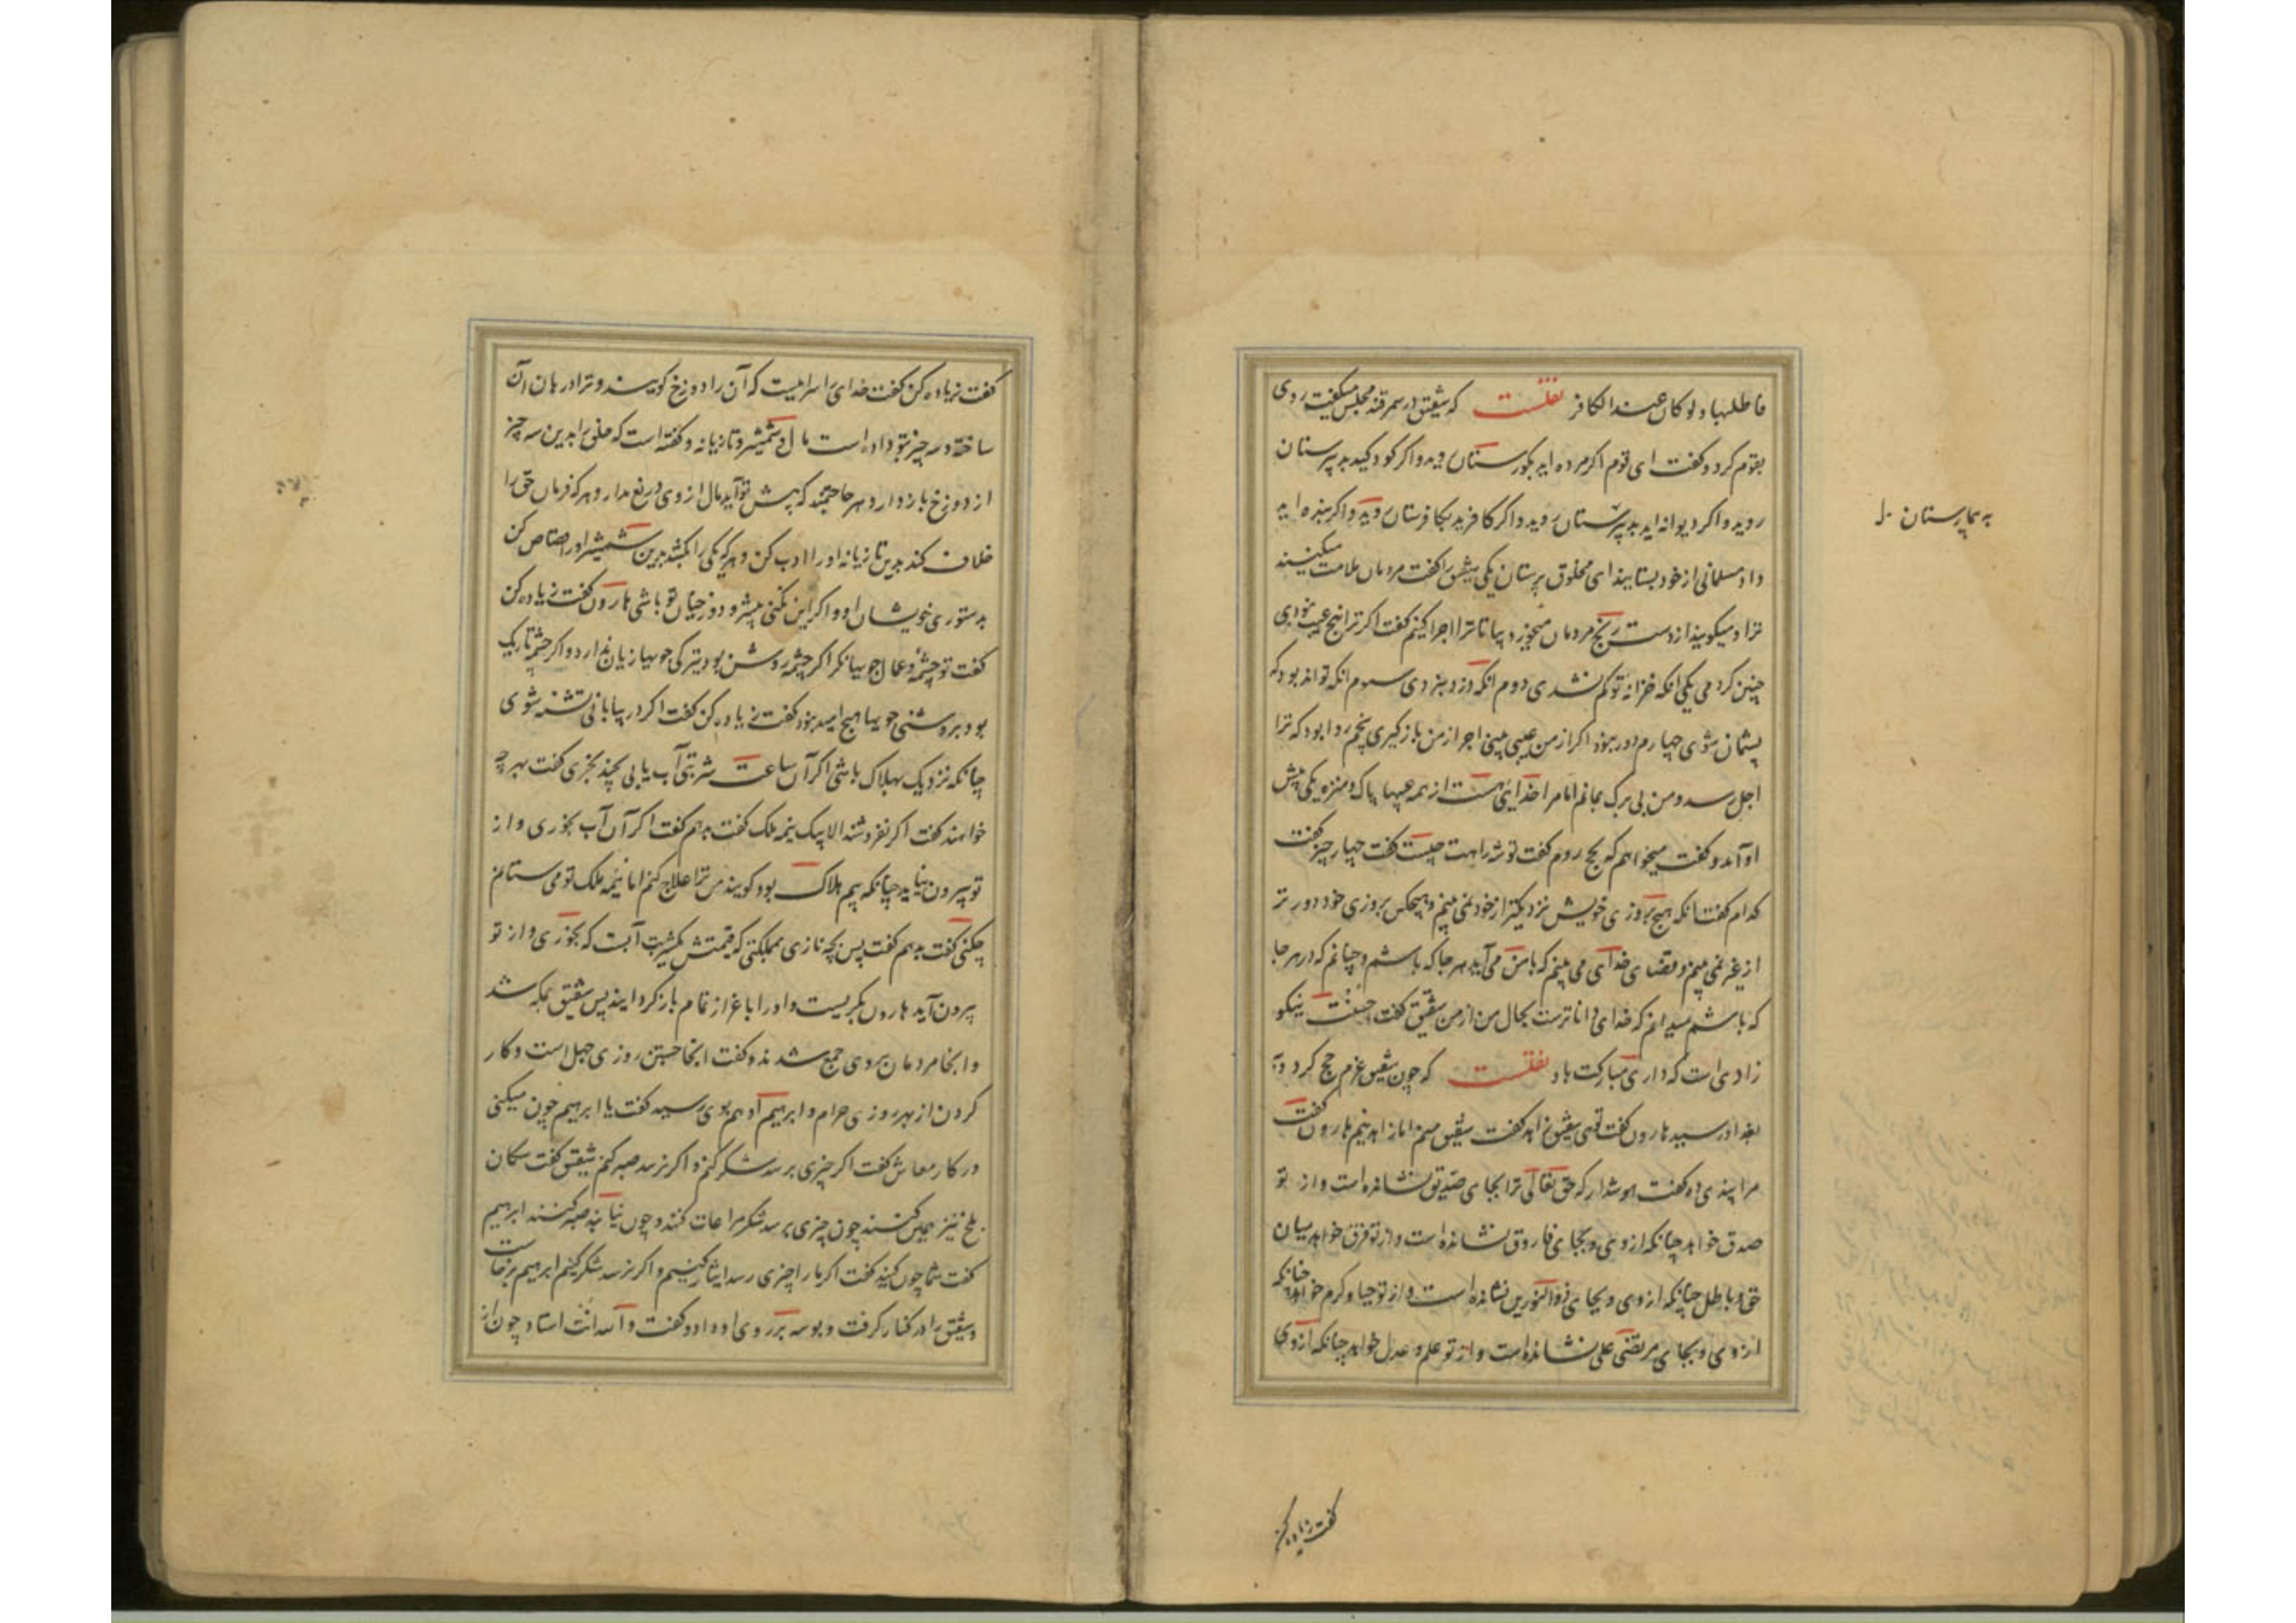 فاطلبها ولو كان عند الكافر نقلست که شقیق در سمرقند مجلس میگفت روی
بقوم کرد و گفت ای قوم اگر مرده اید بگورستان روید و اگر کودکید بدبیرستان
روید و اگر دیوانه اید بدبیرستان روید و اگر کافرید بکافرستان روید و اگر بنده اید
داد مسلمانی از خود بستانید ای مخلوق پرستان یکی شقیق را گفت مردمان ملامت میکنند
ترا و میگویند از دست رنج مردمان میخورد بیا تا ترا اجرا کنم گفت اگر ترا پنج عیب نبودی
چنین کردمی یکی انکه خزانه تو کم شدی دوم انکه دزد ببردی سوم انکه تواند بود که
پشیمان شوی چهارم دور نبود اگر از من عیبی بینی اجرا از من باز گیری پنجم روا بود که ترا
اجل رسد و من بی برگ بمانم اما مرا خدایی هست از همه عیبها پاک و منزه یکی پیش
او آمد و گفت میخواهم که بحج روم گفت توشه راهت چیست گفت چهار چیز گفت
کدام گفت انکه هیچ بروزی خویش نزدیکتر از خود نمی بینم و هیچکس بروزی خود دورتر
از غیر نمی بینم و قضای خدای می بینم که با من می آید هر جا که باشم و چنانم که در هر جا
که باشم میدانم که خدای داناترست بحال من از من شقیق گفت احسنت نیکو
زادی است که داری مبارکت باد نقلست که چون شقیق عزم حج کرد و به
بغداد رسید هارون گفت توئی شقیق زاهد گفت شقیق منم اما زاهد نیم هارون گفت
مرا پندی ده گفت هوشدار که حق تعالی ترا بجای صدیق نشانده است و از تو
صدق خواهد چنانکه از وی و بجای فاروق نشانده است و از تو فرق خواهد میان
حق و باطل چنانکه از وی و بجای ذوالنورین نشانده است و از تو حیا و کرم خواهد چنانکه
از وی و بجای مرتضی علی نشانده است و از تو علم و عدل خواهد چنانکه از وی
به بیمارستان
گفت زیاده کن
گفت زیاده کن گفت خدای را سرائیست که آن را دوزخ گویند و ترا دربان آن
ساخته و سه چیز بتو داده است مال و شمشیر و تازیانه و گفته است که خلق را بدین سه چیز
از دوزخ باز دار و هر حاجتمند که پیش تو آید مال از وی دریغ مدار و هر که فرمان حق را
خلاف کند بدین تازیانه او را ادب کن و هر که یکی را بکشد بدین شمشیر او را قصاص کن
بدستوری خویشان او و اگر این نکنی پیشرو دوزخیان تو باشی هارون گفت زیاده کن
گفت تو چشمه و عمال جویها نگر اگر چشمه روشن بود تیرگی جویها زیان ندارد و اگر چشمه تاریک
بود بروشنی جویها هیچ امید نبود گفت زیاده کن گفت اگر در بیابانی تشنه شوی
چنانکه نزدیک بهلاک باشی اگر آن ساعت شربتی آب یابی بچند بخری گفت بهر چه
خواهند گفت اگر نفروشند الا بیک نیمه ملک گفت بدهم گفت اگر آن آب بخوری و از
تو بیرون نیاید چنانکه بیم هلاک بود گویند من ترا علاج کنم اما نیمه ملک تو می ستانم
چکنی گفت بدهم گفت پس بچه نازی بمملکتی که قیمتش یکشربت آبست که بخوری و از تو
بیرون آید هارون بگریست و او را باعزاز تمام باز گردانید پس شقیق بمکه شد
و انجا مردمان بر وی جمع شدند و گفت اینجا جستن روزی جهل است و کار
کردن از بهر روزی حرام و ابراهیم ادهم بوی رسید گفت یا ابراهیم چون میکنی
در کار معاش گفت اگر چیزی برسد شکر کنم و اگر نرسد صبر کنم شقیق گفت سگان
بلخ نیز همین کنند چون چیزی برسد شکر مراعات کنند و چون نیابند صبر کنند ابراهیم
گفت شما چون کنید گفت اگر ما را چیزی رسد ایثار کنیم و اگر نرسد شکر کنیم ابراهیم برخاست
و شقیق را در کنار گرفت و بوسه بر روی او داد و گفت والله انت استاد چون از